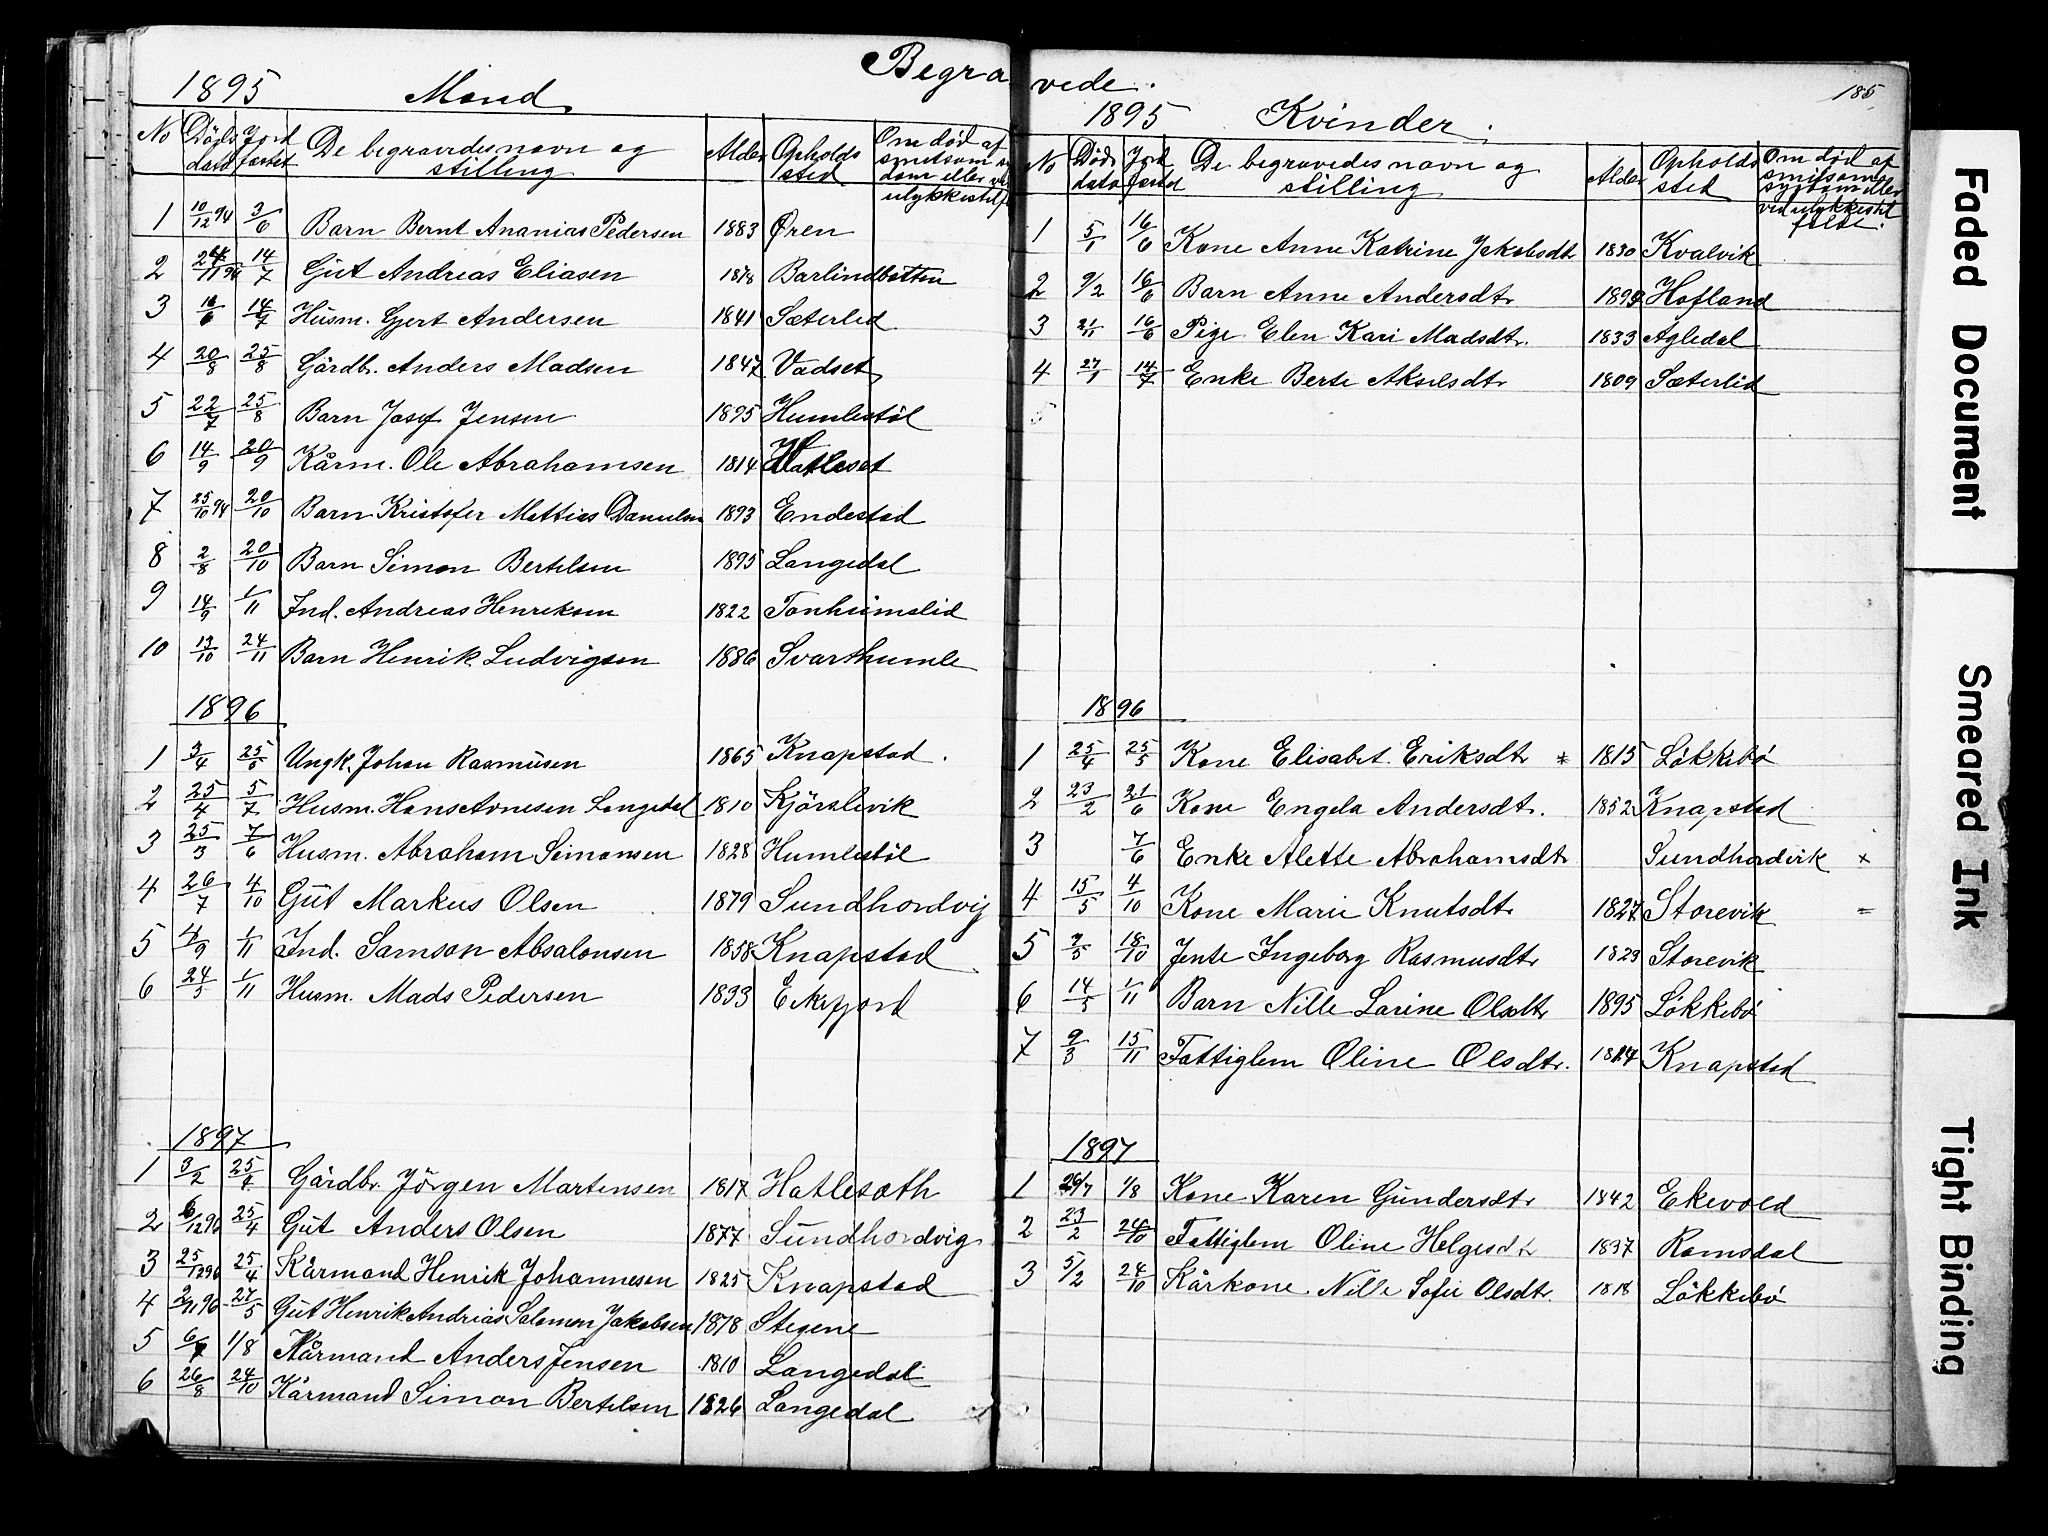 Begravede.
1895 Mænd
No Døds dato Jord fæstet De begravedes navn og stilling Alder Opholds sted Om død af smitsom syg dom eller ved ulykkestilf
1 10/12 94 3/6 Barn Bernt Ananias Pedersen 1883 Øren
2 24/11 94 14/7 Gut Andreas Eliasen 1878 Barlindbotten
3 16/6 14/7 Husm. Gjert Andersen 1841 Sæterlid
4 20/8 25/8 Gårdbr. Anders Madsen 1847 Vadset
5 22/7 25/8 Barn Josef Jensen 1895 Humlestöl
6 14/9 20/9 Kårm. Ole Abrahamsen 1814 Hatleset
7 25/10 94 20/10 Barn Kristofer Mattias Danielsen 1893 Endestad
8 2/8 20/10 Barn Simon Bertelsen 1895 Langedal
9 14/9 1/11 Ind. Andreas Henriksen 1822 Tonheimslid
10 13/10 24/11 Barn Henrik Ludvigsen 1886 Svarthumle
1896
1 3/4 25/5 Ungk. Johan Rasmüsen 1865 Knapstad.
2 25/4 5/7 Husm. Hans Arnesen Langedal 1810 Kjörslevik
3 25/3 7/6 Husm. Abraham Simonsen 1828 Humlestöl
4 26/7 4/10 Gut Markus Olsen 1879 Sundhordvig
5 4/9 1/11 Ind. Samson Absalonsen 1858 Knapstad
6 24/5 1/11 Husm. Mads Pedersen 1833 Eikefjord
1897
1 3/2 25/4 Gårdbr. Jörgen Martensen 1817 Hatlesæth
2 6/12 96 25/4 Gut Anders Olsen 1877 Sundhordvig
3 25/12 96 25/4 Kårmand Henrik Johannesen 1825 Knapstad
4 2/11 96 27/5 Gut Henrik Andrias Salomon Jakobsen 1878 Stegene
5 6/7 1/8 Kårmand Anders Jensen 1810 Langedal
6 26/8 24/10 Kårmand Simon Bertelsen 1826 Langedal
185
1895 Kvinder.
No Döds dato Jord fæsted De begravedes navn og stilling Alder Opholds sted Om död af smitsom sygdom eller ved ulykkestil fælde.
1 5/1 16/6 Kone Anne Katrine Jakobsdtr 1830 Kvalvik
2 9/2 16/6 Barn Anne Andersdtr Hofland
3 2/11 16/6 Pige Elen Kari Madsdtr. 1833 Agledal
4 27/1 14/7 Enke Berte Akselsdtr 1809 Sæterlid
5
1896
1 25/4 25/5 Kone Elisabet Eriksdtr * 1815 Lökkebö
2 23/2 21/6 Kone Engela Andersdtr. 1852 Knapstad
3 7/6 Enke Alette Abrahamsdtr Sundhordvik ×
4 15/5 4/10 Kone Marie Knutsdtr 1827 Storevik =
5 7/5 18/10 Jente Ingeborg Rasmusdtr 1823 Storevik
6 14/5 1/11 Barn Nille Larine Olsdtr 1895 Lökkebö
7 9/3 15/11 Fattiglem Oline Olsdtr. 1814 Knapstad
1897
1 26/7 1/8 Kone Karen Gundersdtr 1842 Ekevold
2 23/2 24/10 Fattiglem Oline Helgesdtr 1837 Ramsdal
3 5/2 24/10 Kårkone Nille Sofie Olsdtr. 1818 Lökkebö
Faded Document
Smeared Ink
Tight Binding